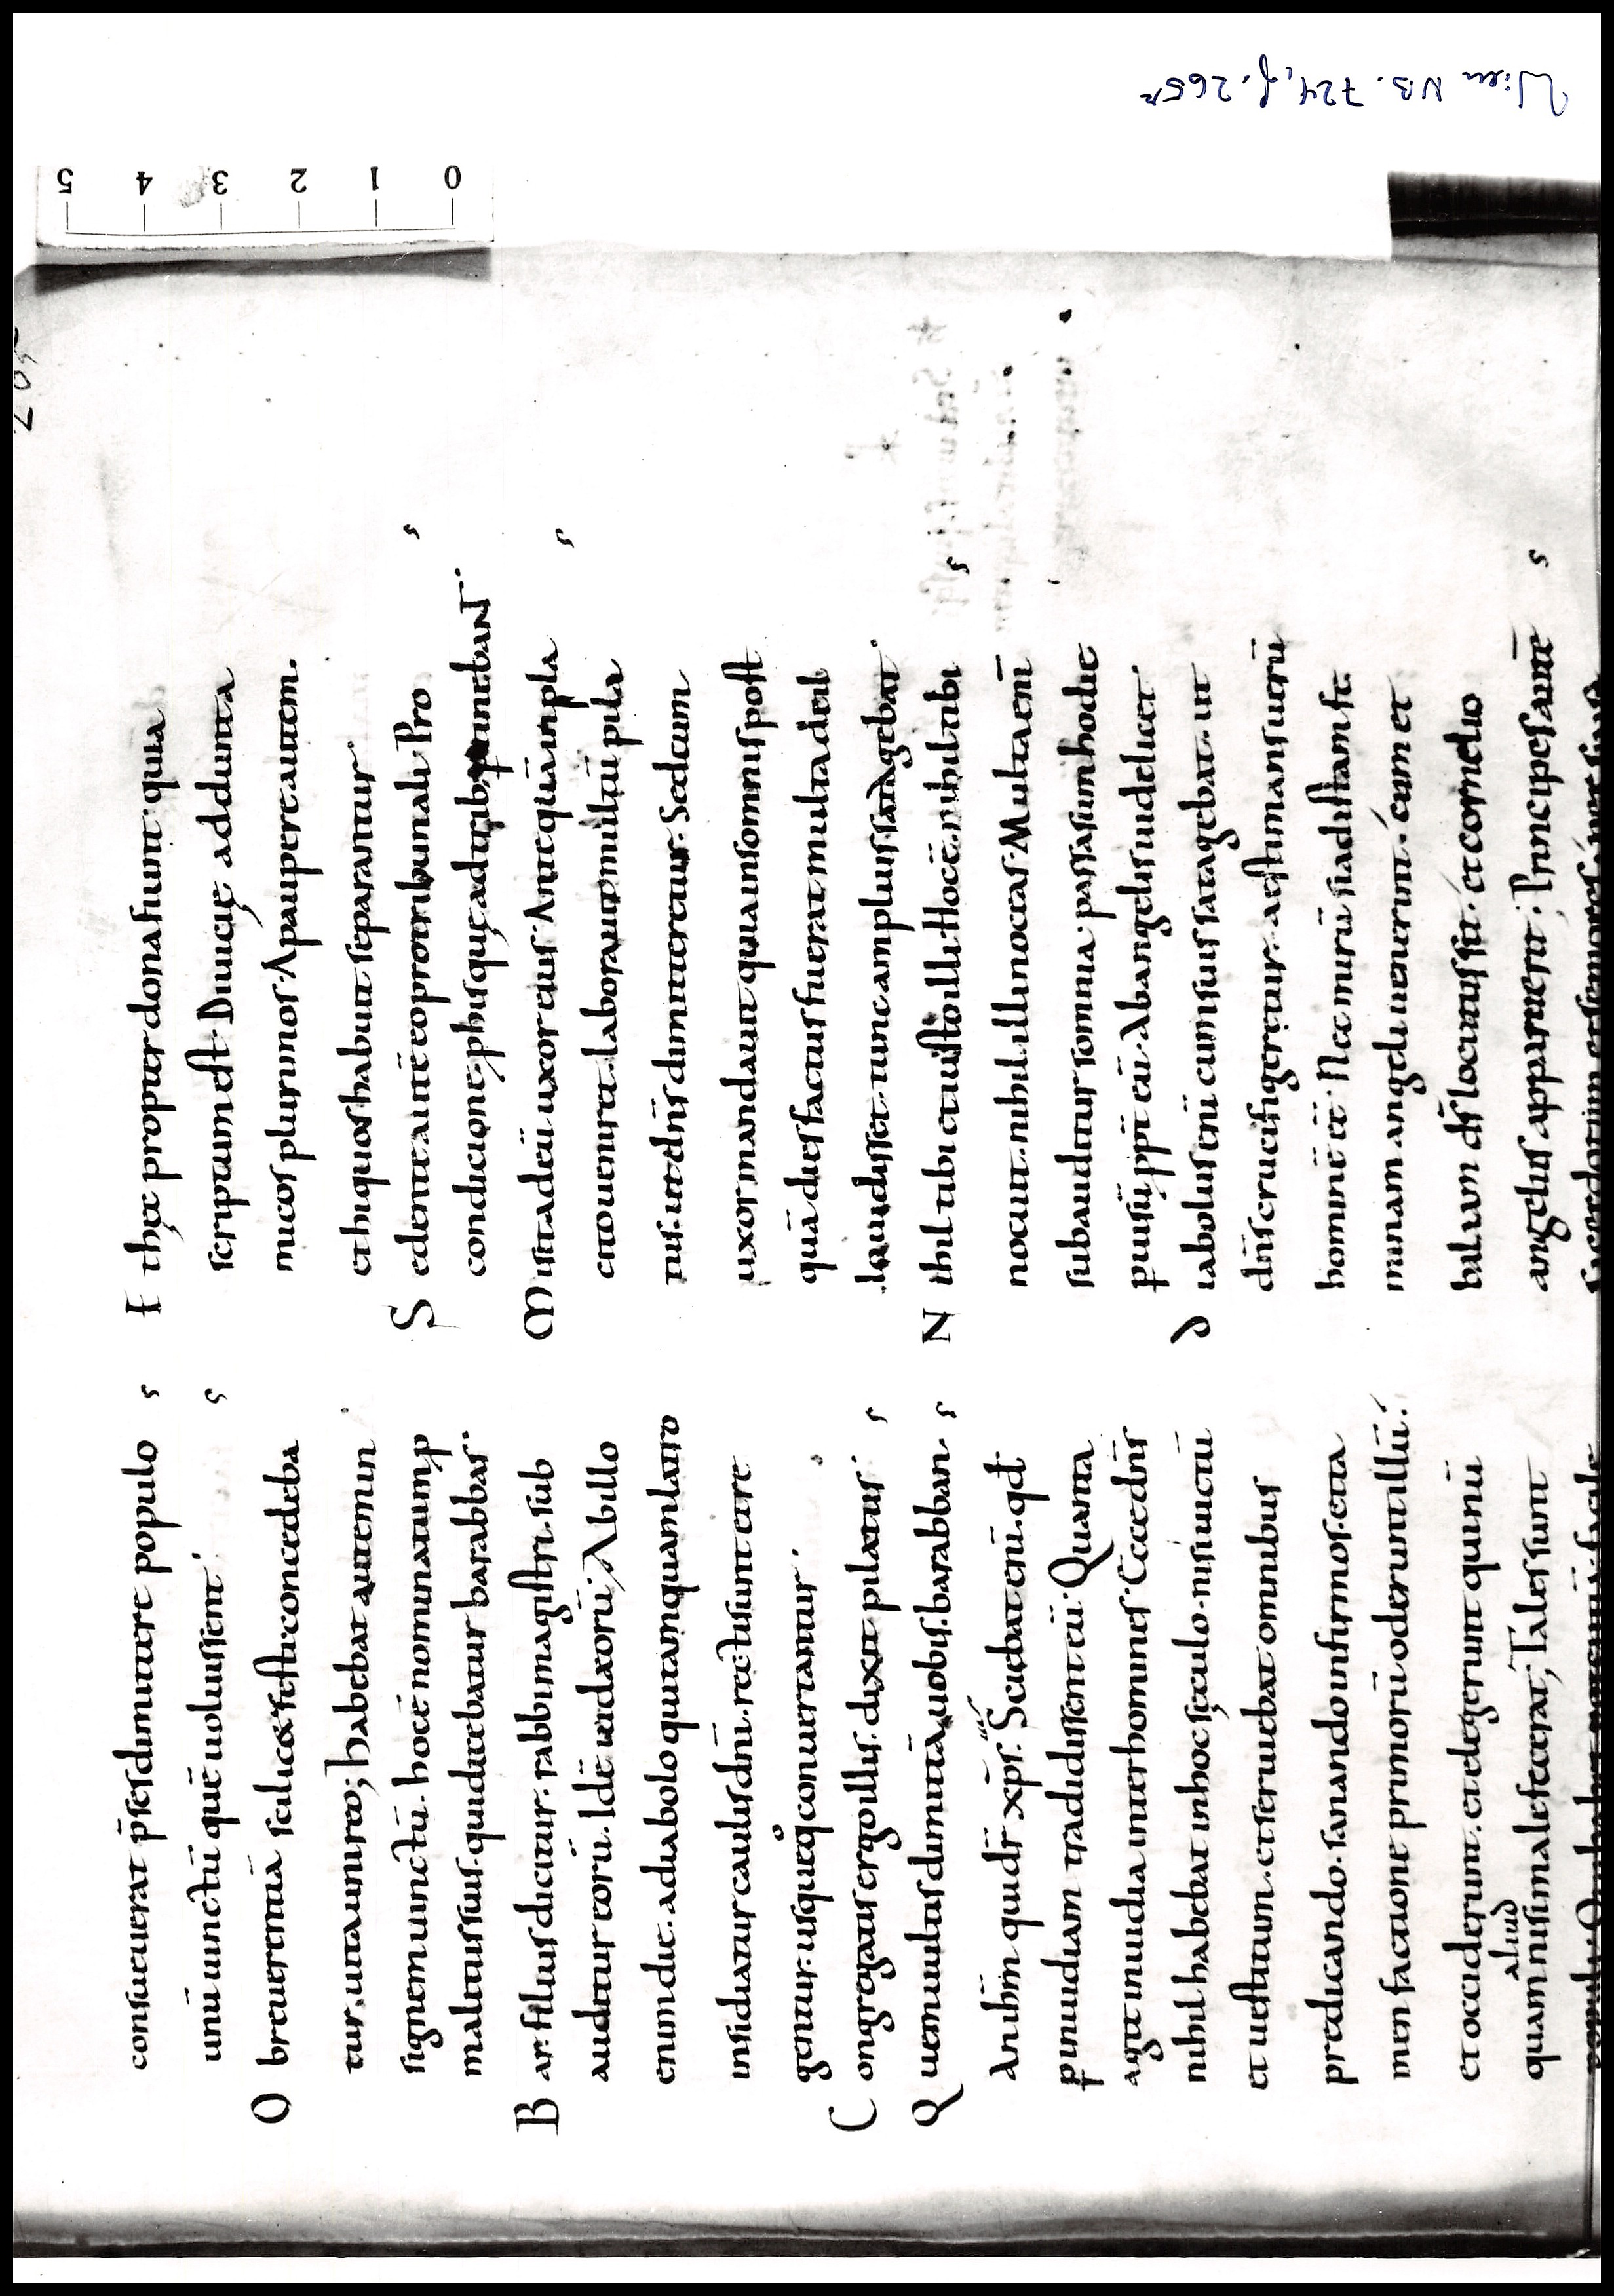 Wien NB. 724, f. 265r
0 1 2 3 4 5
265
consueuerat p̄ses dimittere populo
unū uinctū quē uoluissent.
Ob reuerentiā scilicet festi concedeba
tur. uita unireo; habebat autem in
signem uinctū. hoc ē nominatum p
malitus suis. qui dicebatur barabbas.
Bar. filius dicitur. rabbi magistri. sub
auditur eorū. Idē iudaeorū. Ab illo
enim die. a diabolo qui tamquam latro
insidiatur caulis dnī. recti sunt et re
gentur. usque q̊ conuertantur.
Congregatis ergo illis. dixit pilatus.
Quem uultis dimittā uobis. barabban.
An ihm̄ qui dr̄ xp̄s. Sciebat enī. qd̄
ꝑ inuidiam tradidissent eū. Quanta
agit inuidia inter homines. Ecce dnīs
nihil habebat in hoc sęculo. nisi uictū
et uestitum. et seruiebat omnibus
predicando. sanando infirmos. et ta
men factione primorū oderunt illū.
et occiderunt. et elegerunt qui nū
aliud
quam nisi male fecerat; Tales sunt
It hęc propter dona fiunt. quia
scriptum est. Diuicię addunt a
micos plurimos. A paupere autem.
et hi quos habuit separantur
Sedente autē eo pro tribunali. Pro
condicione
Misit ad eū uxor eius. Antequā in pla
cito uenire. laborauit multū pila
tus. ut dnīs dimitteretur. Sed cum
uxor mandauit quia in somnis post
quā dies factus fuerat multa de il
lo audisset. tunc amplius satagebat.
Nihil tibi et iusto illi. Hoc ē. nihil tibi
nocuit. nihil illi noceas. Multa enī
subauditur somnia. passa sum hodie
ꝑ uisū ppt̄ eū. Ab angelis uidelicet.
Diabolus enī cum suis satagebat. ut
dnīs crucifigeretur. aestimans uerū
hominē eē. Nec mirū si ad istam fe
minam angeli uenerunt. cum et
balaam ds̄ locutus sit. et cornelio
angelus apparuerit. Principes autē